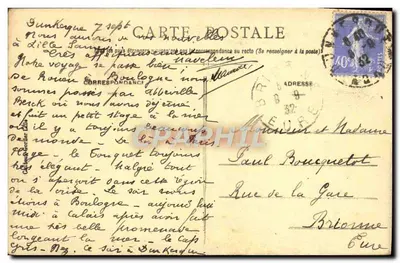 Dunkerque 7 sept
CARTE POSTALE
Nous aurons de vos nouvelles
à Lille
Très affectueusement
Notre voyage se passe très bien
CORRESPONDANCE
ADRESSE
de Rouen à Boulogne nous
sommes passés par Abbeville
Berck où nous avons déjeuné
et fait un petit stage à la mer
où il y a toujours
Monsieur et Madame
de monde - Le
Paul Bouquetot
plage - Le Touquet toujours
très élégant. Malgré tout
Rue de la Gare
on s'aperçoit dans cette région
Brionne
de la crise. Le soir nous
Eure
étions à Boulogne - aujourd'hui
midi à Calais après avoir fait
une très belle promenade
longeant la mer - le cap
gris-Nez. Ce soir à Dunkerque